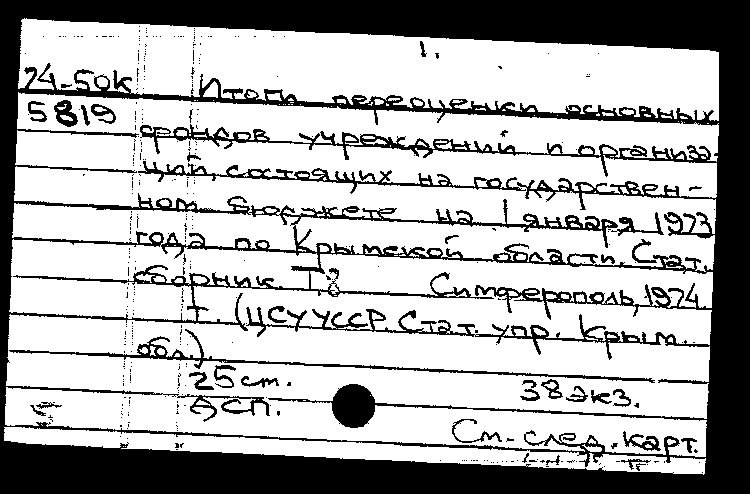 1.
74-50к Итоги переоценки основных
5819
фондов учреждений и организа-
ций, состоящих на государствен-
ном бюджете на 1 января 1973
года по Крымской области. Стат.
сборник. Т. 8 Симферополь, 1974.
т. (ЦСУ УССР. Стат. упр. Крым.
обл.).
25 ст. 38 экз.
ДСП.
См. след. карт.